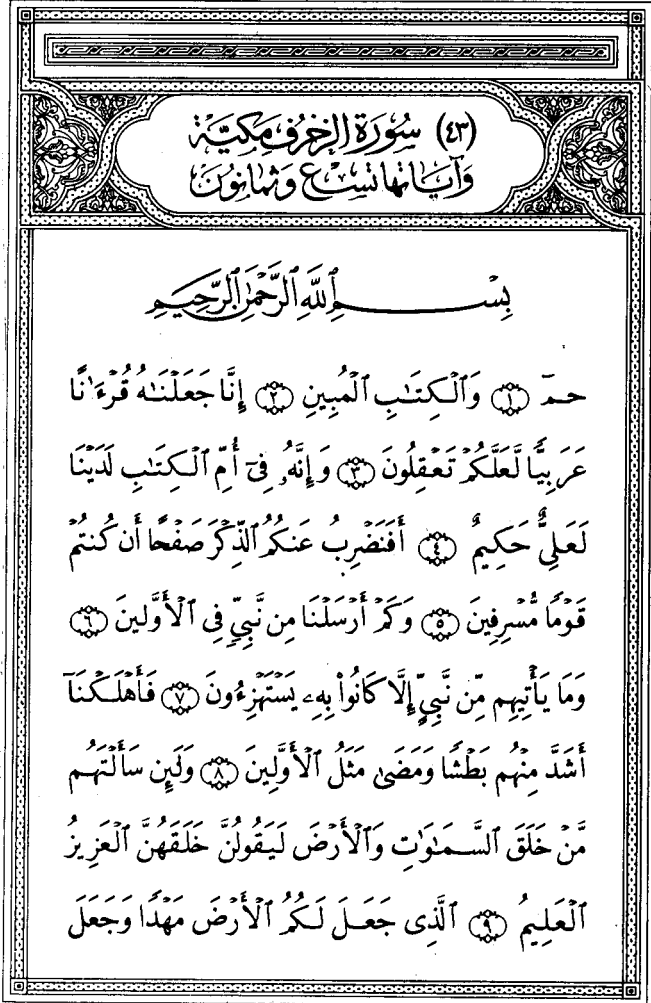 (٤٣) سُورَةُ الزُّخْرُفِ مَكِّيَّة
وَآيَاتُهَا تِسْعٌ وَثَمَانُونَ
بِسْمِ ٱللَّهِ ٱلرَّحْمَٰنِ ٱلرَّحِيمِ
حمٓ ﴿١﴾ وَٱلْكِتَٰبِ ٱلْمُبِينِ ﴿٢﴾ إِنَّا جَعَلْنَٰهُ قُرْءَٰنًا
عَرَبِيًّا لَّعَلَّكُمْ تَعْقِلُونَ ﴿٣﴾ وَإِنَّهُۥ فِىٓ أُمِّ ٱلْكِتَٰبِ لَدَيْنَا
لَعَلِىٌّ حَكِيمٌ ﴿٤﴾ أَفَنَضْرِبُ عَنكُمُ ٱلذِّكْرَ صَفْحًا أَن كُنتُمْ
قَوْمًا مُّسْرِفِينَ ﴿٥﴾ وَكَمْ أَرْسَلْنَا مِن نَّبِىٍّ فِى ٱلْأَوَّلِينَ ﴿٦﴾
وَمَا يَأْتِيهِم مِّن نَّبِىٍّ إِلَّا كَانُوا۟ بِهِۦ يَسْتَهْزِءُونَ ﴿٧﴾ فَأَهْلَكْنَآ
أَشَدَّ مِنْهُم بَطْشًا وَمَضَىٰ مَثَلُ ٱلْأَوَّلِينَ ﴿٨﴾ وَلَئِن سَأَلْتَهُم
مَّنْ خَلَقَ ٱلسَّمَٰوَٰتِ وَٱلْأَرْضَ لَيَقُولُنَّ خَلَقَهُنَّ ٱلْعَزِيزُ
ٱلْعَلِيمُ ﴿٩﴾ ٱلَّذِى جَعَلَ لَكُمُ ٱلْأَرْضَ مَهْدًا وَجَعَلَ